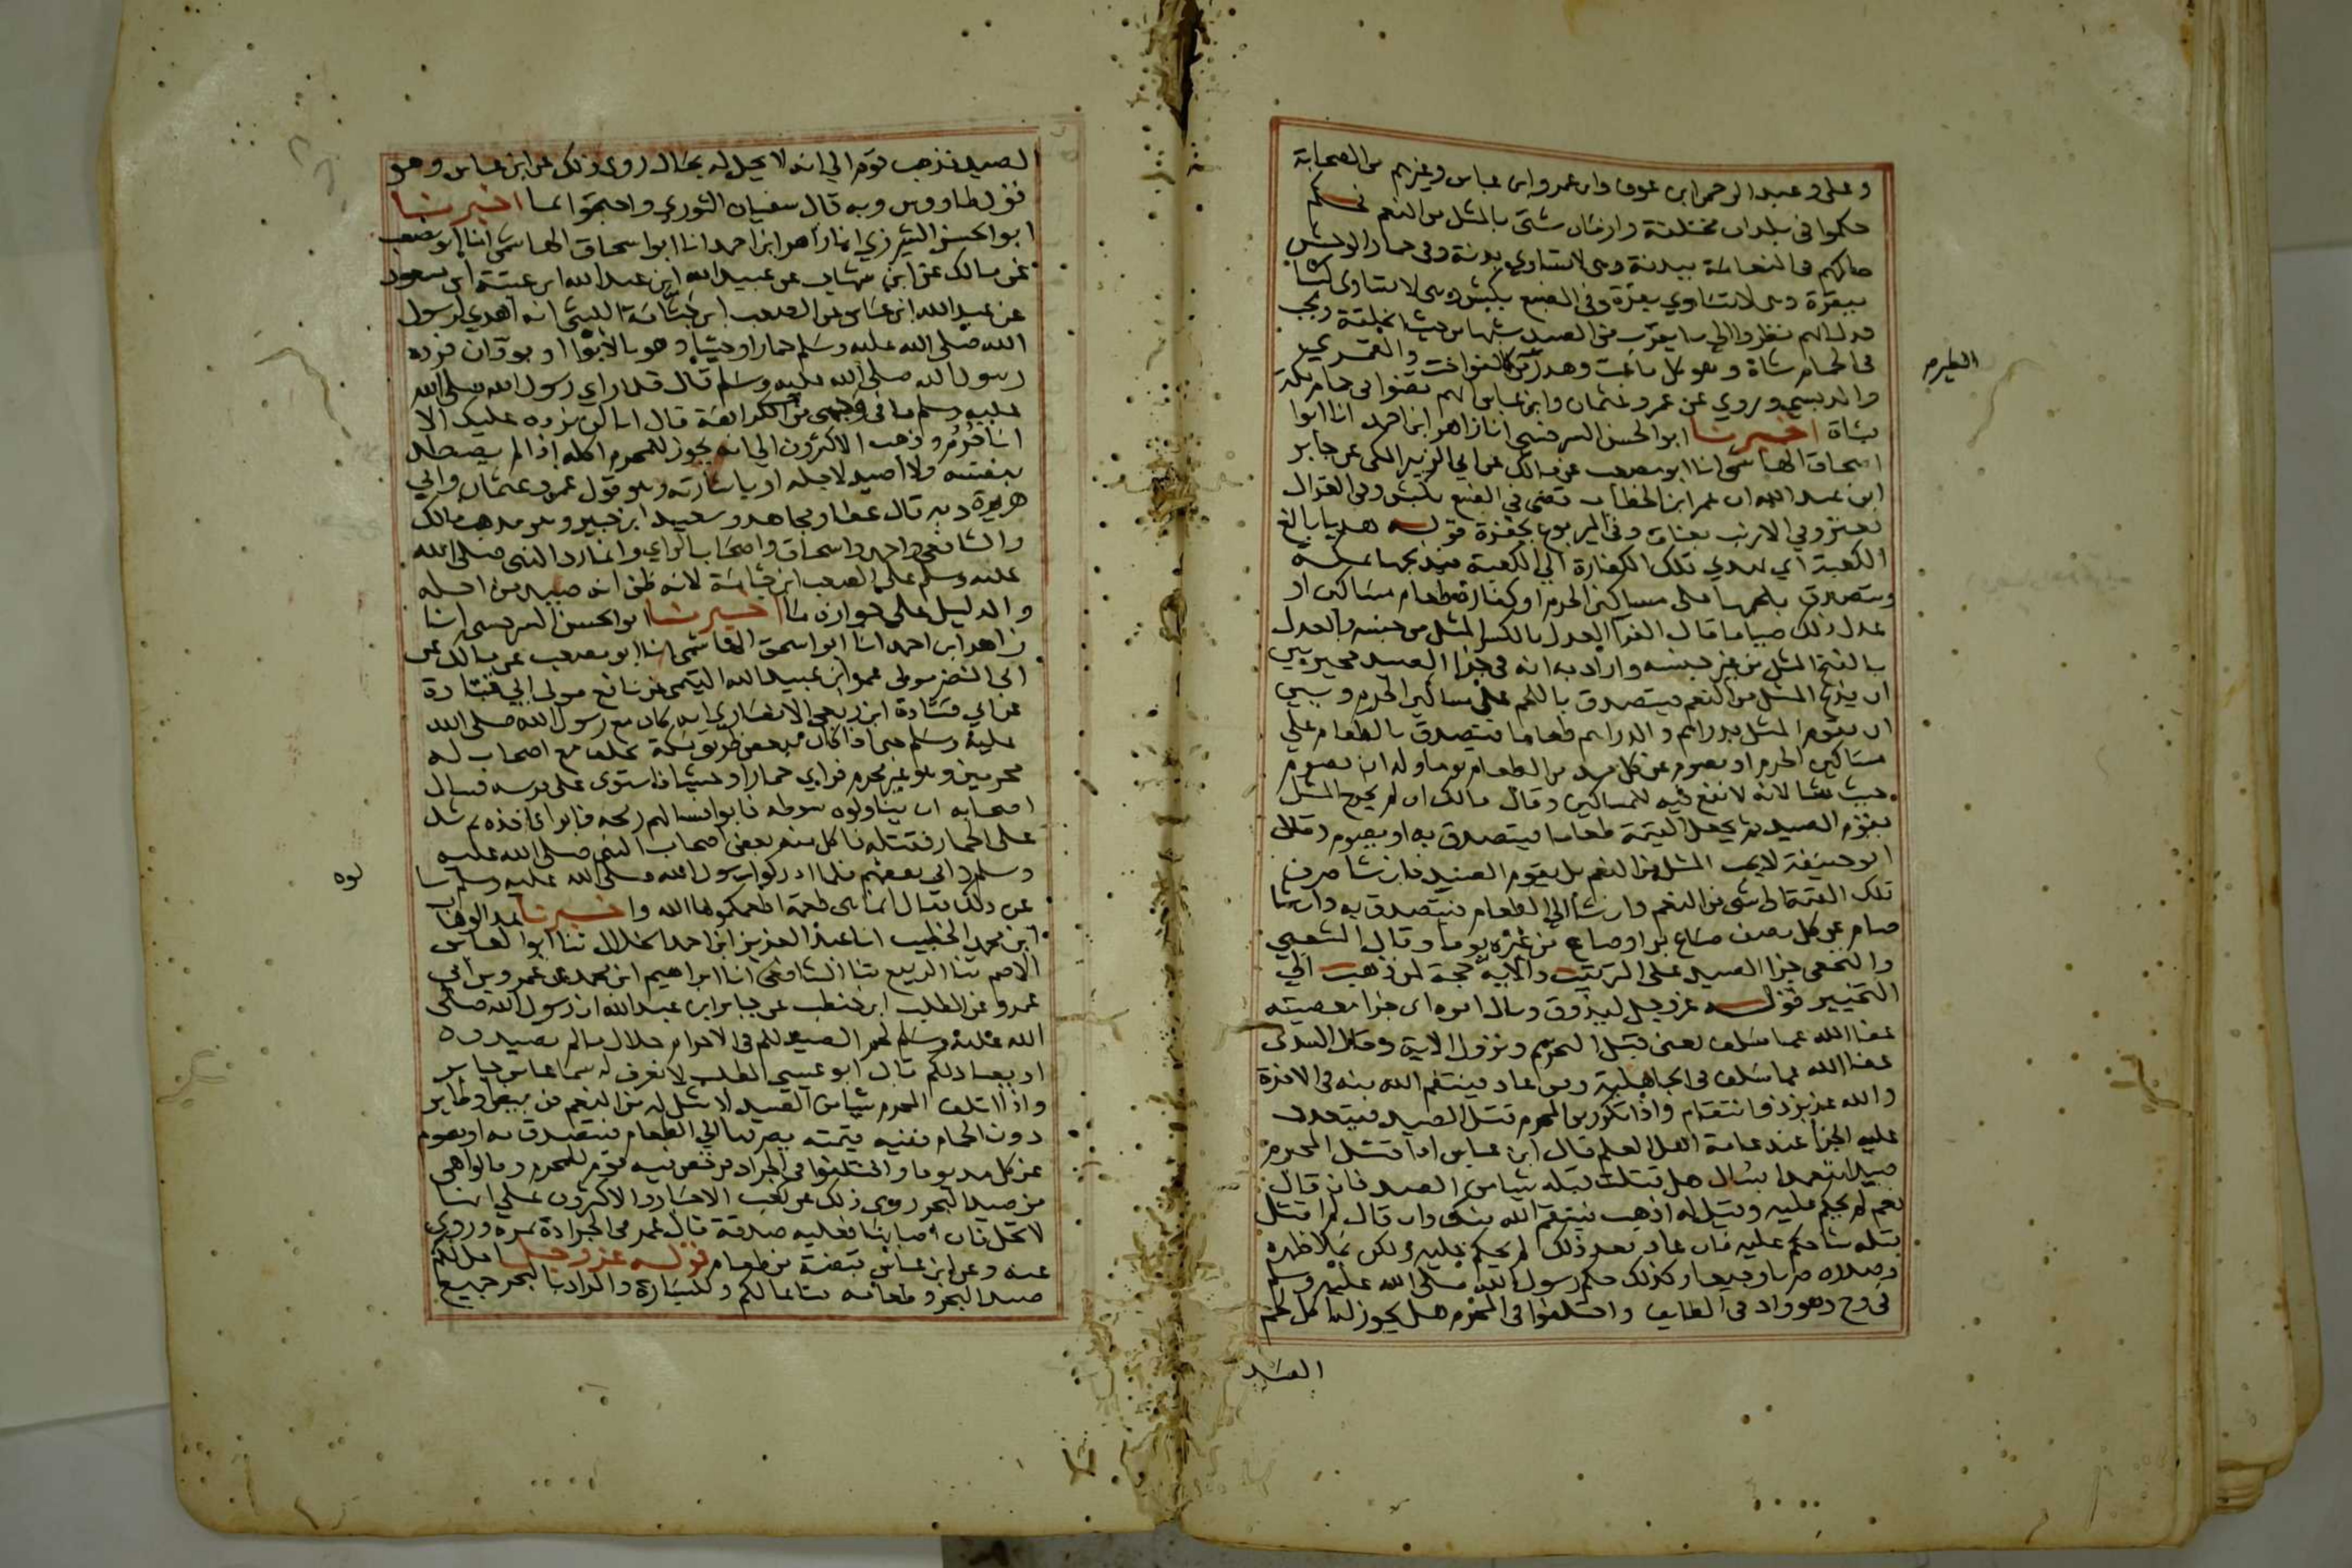 وعلي وعبد الرحمن ابن عوف وابن عمر وابن عباس وغيرهم من الصحابة
حكموا في بلدان مختلفة وازمان شتى بالمثل من النعم فحكم
حاكمهم في النعامة ببدنة وهي لا تساوي بدنة وفي حمار الوحش
ببقرة وهي لا تساوي بقرة وفي الضبع بكبش وهي لا تساوي كبشا
فدل انهم نظروا الى ما يقرب من الصيد شبها من حيث الخلقة ويجب
في الحمام شاة وهو كل ما عب وهدر من كالفواخت والقمري
الطير
والدبسي وروي عن عمر وعثمان وابن عباس انهم قضوا في حمام مكة
بشاة اخبرنا ابو الحسن السرخسي انا زاهر ابن احمد انا ابوا
اسحاق الهاشمي انا ابو مصعب عن مالك عن ابي الزبير المكي عن جابر
ابن عبد الله ان عمر ابن الخطاب قضى في الضبع بكبش وفي الغزال
بعنز وفي الارنب بعناق وفي اليربوع بجفرة قوله هديا بالغ
الكعبة اي يهدي تلك الكفارة الي الكعبة فيذبحها بمكة
ويتصدق بلحمها على مساكين الحرم او كفارة طعام مساكين او
عدل ذلك صياما قال الفرا العدل بالكسر المثل من جنسه والعدل
بالفتح المثل من غير جنسه واراد به انه في جزا الصيد مخير بين
ان يذبح المثل من النعم فيتصدق باللحم على مساكين الحرم وبين
ان يقوم المثل بدراهم والدراهم طعاما فيتصدق بالطعام علي
مساكين الحرم او يصوم عن كل مد من الطعام يوما وله ان يصوم
حيث شا لانه لا نفع فيه للمساكين وقال مالك ان لم يخرج المثل
يقوم الصيد ثم يجعل القيمة طعاما فيتصدق به او يصوم وقال
ابو حنيفة لا يجب المثل من النعم بل يقوم الصيد فان شا صرف
تلك القيمة الى شي من النعم وان شا الي الطعام فيتصدق به وان شا
صام عن كل نصف صاع بر او صاع من غيره يوما وقال الشعبي
والنخعي جزا الصيد على الترتيب والاية حجة لمن ذهب الي
التخيير قوله عز وجل ليذوق وبال امره اي جزا معصيته
عفا الله عما سلف يعني قبل التحريم ونزول الاية وقال السدي
عفا الله عما سلف في الجاهلية ومن عاد فينتقم الله منه في الاخرة
والله عزيز ذو انتقام واذا تكرر من المحرم قتل الصيد فيتعدد
عليه الجزا عند عامة اهل العلم قال ابن عباس اذا قتل المحرم
صيدا متعمدا يسال هل قتلت قبله شيا من الصيد فان قال
نعم لم يحكم عليه وقيل له اذهب فينتقم الله منك وان قال لم اقتل
قبله شيا حكم عليه فان عاد بعد ذلك لم يحكم عليه ولكن يملا ظهره
وصدره ضربا وجيعا وكذلك حكم رسول الله صلى الله عليه وسلم
في وج وهو واد في الطايف واختلفوا في المحرم هل يجوز له اكل لحم
الصيد
الصيد فذهب قوم الي انه لا يحل له بحال روى ذلك عن ابن عباس وهو
قول طاووس وبه قال سفيان الثوري واحتجوا بما اخبرنا
ابو الحسن الشيرزي انا زاهر ابن احمد انا ابو اسحاق الهاشمي انا ابو مصعب
عن مالك عن ابن شهاب عن عبيد الله ابن عبد الله ابن عتبة ابن مسعود
عن عبد الله ابن عباس عن الصعب ابن جثامة الليثي انه اهدي لرسول
الله صلى الله عليه وسلم حمارا وحشيا وهو بالابوا او بودان فرده
رسول الله صلى الله عليه وسلم قال فلما راي رسول الله صلى الله
عليه وسلم ما في وجهي من الكراهة قال انا لم نرده عليك الا
انا حرم وذهب الاكثرون الي انه يجوز للمحرم اكله اذا لم يصطد
بنفسه ولا اصيد لاجله او باشارته وهو قول عمر وعثمان وابي
هريرة وبه قال عطا ومجاهد وسعيد ابن جبير وهو مذهب مالك
والشافعي واحمد واسحاق واصحاب الراي وانما رد النبي صلى الله
عليه وسلم على الصعب ابن جثامة لانه ظن انه صيد من اجله
والدليل على جوازه ما اخبرنا ابو الحسن السرخسي انا
زاهر ابن احمد انا ابو اسحق الهاشمي انا ابو مصعب عن مالك عن
ابي النضر مولى عمر ابن عبيد الله التيمي عن نافع مولى ابي قتادة
عن ابي قتادة ابن ربعي الانصاري انه كان مع رسول الله صلى الله
عليه وسلم حتى اذا كان ببعض طريق مكة تخلف مع اصحاب له
محرمين وهو غير محرم فراي حمارا وحشيا فاستوى على فرسه فسال
اصحابه ان يناولوه سوطه فابوا فسالهم رمحه فابوا فاخذه ثم شد
على الحمار فقتله فاكل منه بعض اصحاب النبي صلى الله عليه
وسلم وابي بعضهم فلما ادركوا رسول الله صلى الله عليه وسلم سا
لوه
عن ذلك فقال انما هي طعمة اطعمكموها الله واخبرنا عبد الوهاب
ابن محمد الخطيب انا عبد العزيز ابن احمد الخلال ثنا ابو العباس
الاصم ثنا الربيع ثنا الشافعي انا ابراهيم ابن محمد عن عمرو بن ابي
عمرو عن المطلب ابن حنطب عن جابر ابن عبد الله ان رسول الله صلى
الله عليه وسلم لحم الصيد لكم في الاحرام حلال ما لم تصيدوه
او يصاد لكم قال ابو عيسي المطلب لا نعرف له سماعا من جابر
واذا اتلف المحرم شيا من الصيد لا مثل له من النعم من بيض او طاير
دون الحمام ففيه قيمته يصرفها الي الطعام فيتصدق به او يصوم
عن كل مد يوما واختلفوا في الجراد فرخص فيه قوم للمحرم وقالوا هي
من صيد البحر روي ذلك عن كعب الاحبار والاكثرون علي انها
لا تحل فان اصابها فعليه صدقة قال عمر في الجرادة تمرة وروي
عنه وعن ابن عباس قبضة من طعام قوله عز وجل احل لكم
صيد البحر وطعامه متاعا لكم وللسيارة والمراد بالبحر جميع